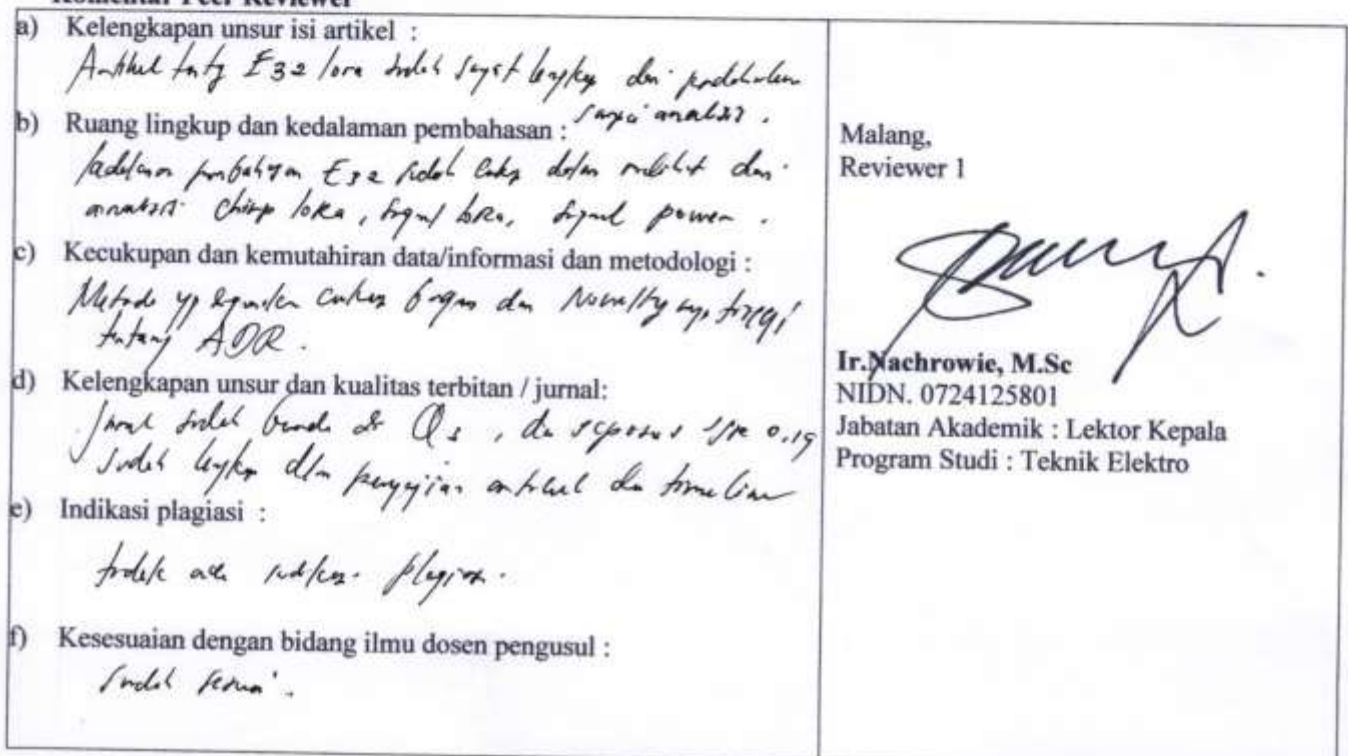 Komentar Peer Reviewer
a) Kelengkapan unsur isi artikel :
Artikel E32 lora sudah sangat lengkap dari pendahuluan
sampai analisis .
b) Ruang lingkup dan kedalaman pembahasan :
pembahasan E32 sudah dalam dan
analisis chirp loRa, signal loRa, signal power .
c) Kecukupan dan kemutahiran data/informasi dan metodologi :
Metode yg digunakan cukup bagus dan Novelty nya tinggi
tentang ADR .
d) Kelengkapan unsur dan kualitas terbitan / jurnal:
Jurnal sudah berada di Q3 , 0.19
sudah lengkap dlm penyajian artikel dan timeline
e) Indikasi plagiasi :
tidak ada indikasi plagiasi .
f) Kesesuaian dengan bidang ilmu dosen pengusul :
sudah sesuai .
Malang,
Reviewer 1
Ir.Nachrowie, M.Sc
NIDN. 0724125801
Jabatan Akademik : Lektor Kepala
Program Studi : Teknik Elektro